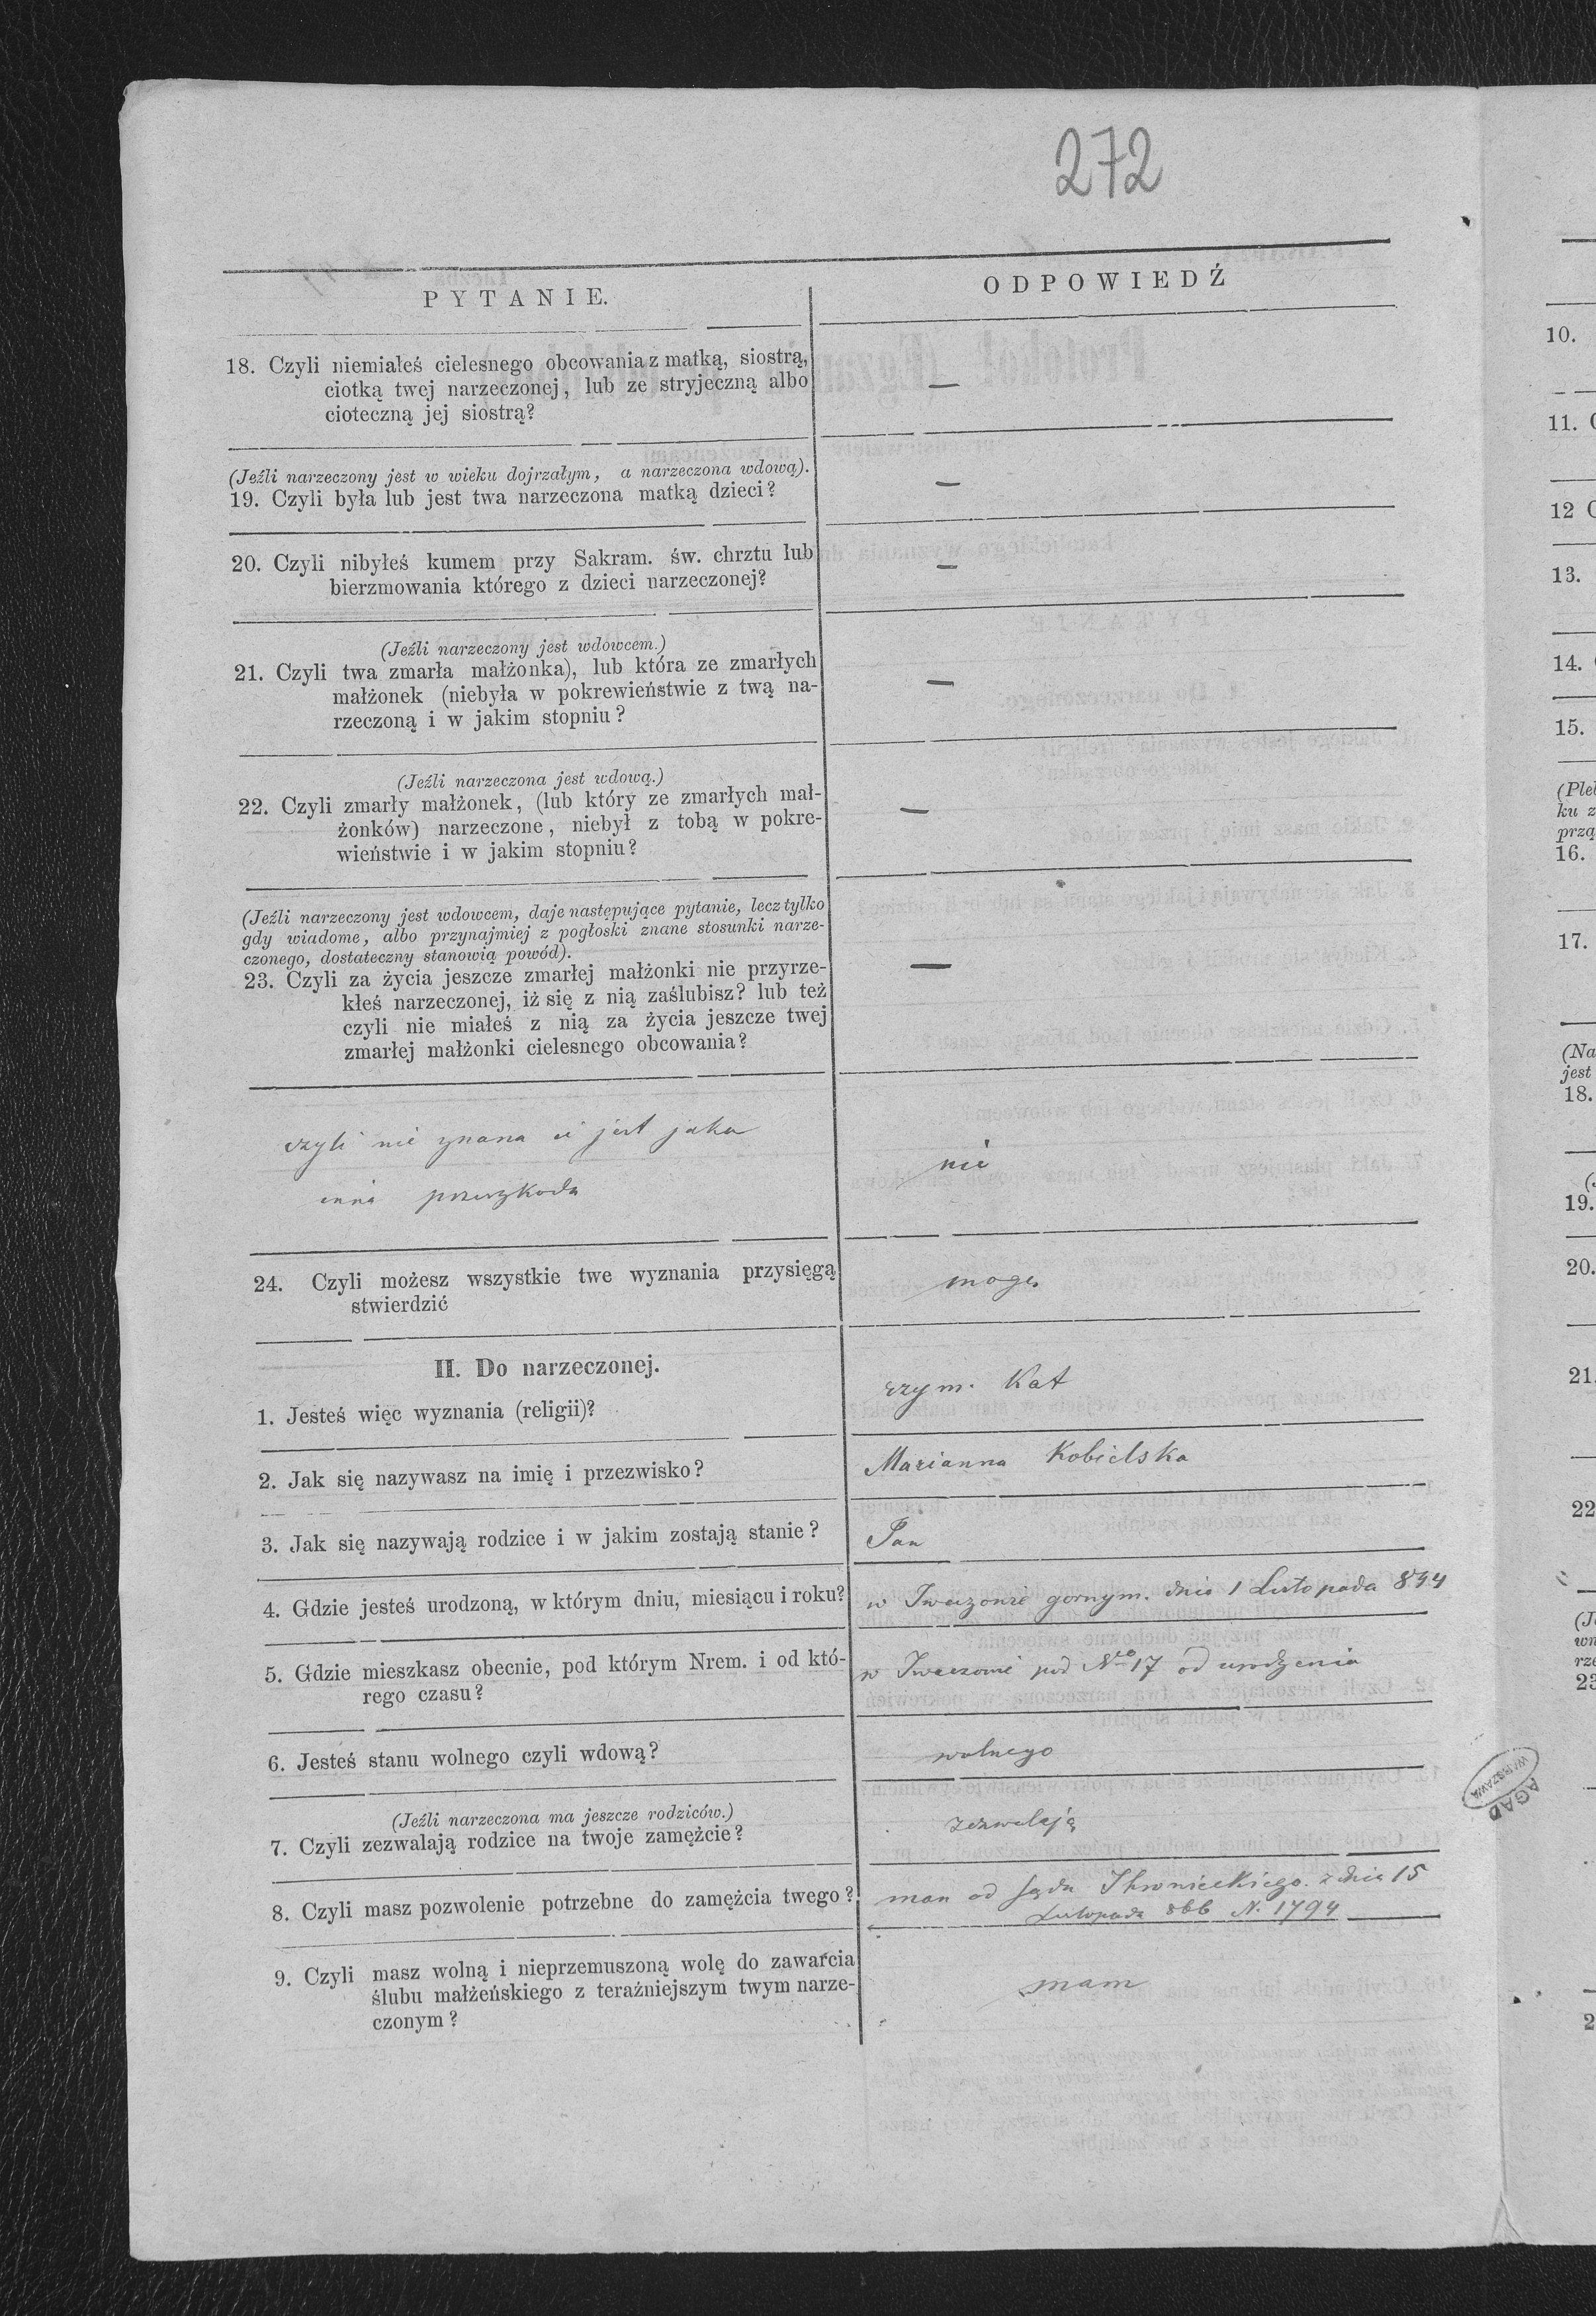 272
PYTANIE.
ODPOWIEDŹ
18. Czyli niemiałeś cielesnego obcowania z matką, siostrą,
ciotką twej narzeczonej, lub ze stryjeczną albo
cioteczną jej siostrą?
—
(Jeźli narzeczony jest w wieku dojrzałym, a narzeczona wdową).
19. Czyli była lub jest twa narzeczona matką dzieci?
—
20. Czyli nibyłeś kumem przy Sakram. św. chrztu lub
bierzmowania którego z dzieci narzeczonej?
—
(Jeźli narzeczony jest wdowcem.)
21. Czyli twa zmarła małżonka), lub która ze zmarłych
małżonek (niebyła w pokrewieństwie z twą na-
rzeczoną i w jakim stopniu?
—
(Jeźli narzeczona jest wdową.)
22. Czyli zmarły małżonek, (lub który ze zmarłych mał-
żonków) narzeczone, niebył z tobą w pokre-
wieństwie i w jakim stopniu?
—
(Jeźli narzeczony jest wdowcem, daje następujące pytanie, lecz tylko
gdy wiadome, albo przynajmiej z pogłoski znane stosunki narze-
czonego, dostateczny stanowią powód).
23. Czyli za życia jeszcze zmarłej małżonki nie przyrze-
kłeś narzeczonej, iż się z nią zaślubisz? lub też
czyli nie miałeś z nią za życia jeszcze twej
zmarłej małżonki cielesnego obcowania?
—
czyli nie znana ci jest jaka
inna przeszkoda
nie
24. Czyli możesz wszystkie twe wyznania przysięgą
stwierdzić
mogę
II. Do narzeczonej.
1. Jesteś więc wyznania (religii)?
rzym. Kat
2. Jak się nazywasz na imię i przezwisko?
Marianna Kobielska
3. Jak się nazywają rodzice i w jakim zostają stanie?
Jan
4. Gdzie jesteś urodzoną, w którym dniu, miesiącu i roku?
w gornym. dnia 1 Listopada 844
5. Gdzie mieszkasz obecnie, pod którym Nrem. i od któ-
rego czasu?
w pod Nro 17 od urodzenia
6. Jesteś stanu wolnego czyli wdową?
wolnego
(Jeźli narzeczona ma jeszcze rodziców.)
7. Czyli zezwalają rodzice na twoje zamężcie?
zezwalają
8. Czyli masz pozwolenie potrzebne do zamężcia twego?
mam od Sądu z dnia 15
Listopada 866 N. 1794
9. Czyli masz wolną i nieprzemuszoną wolę do zawarcia
ślubu małżeńskiego z teraźniejszym twym narze-
czonym?
mam
AGAD
WARSZAWA
10.
11.
12
13.
14.
15.
(Ple
ku z
przą
16.
17.
(Na
jest
18.
19.
20.
21.
22